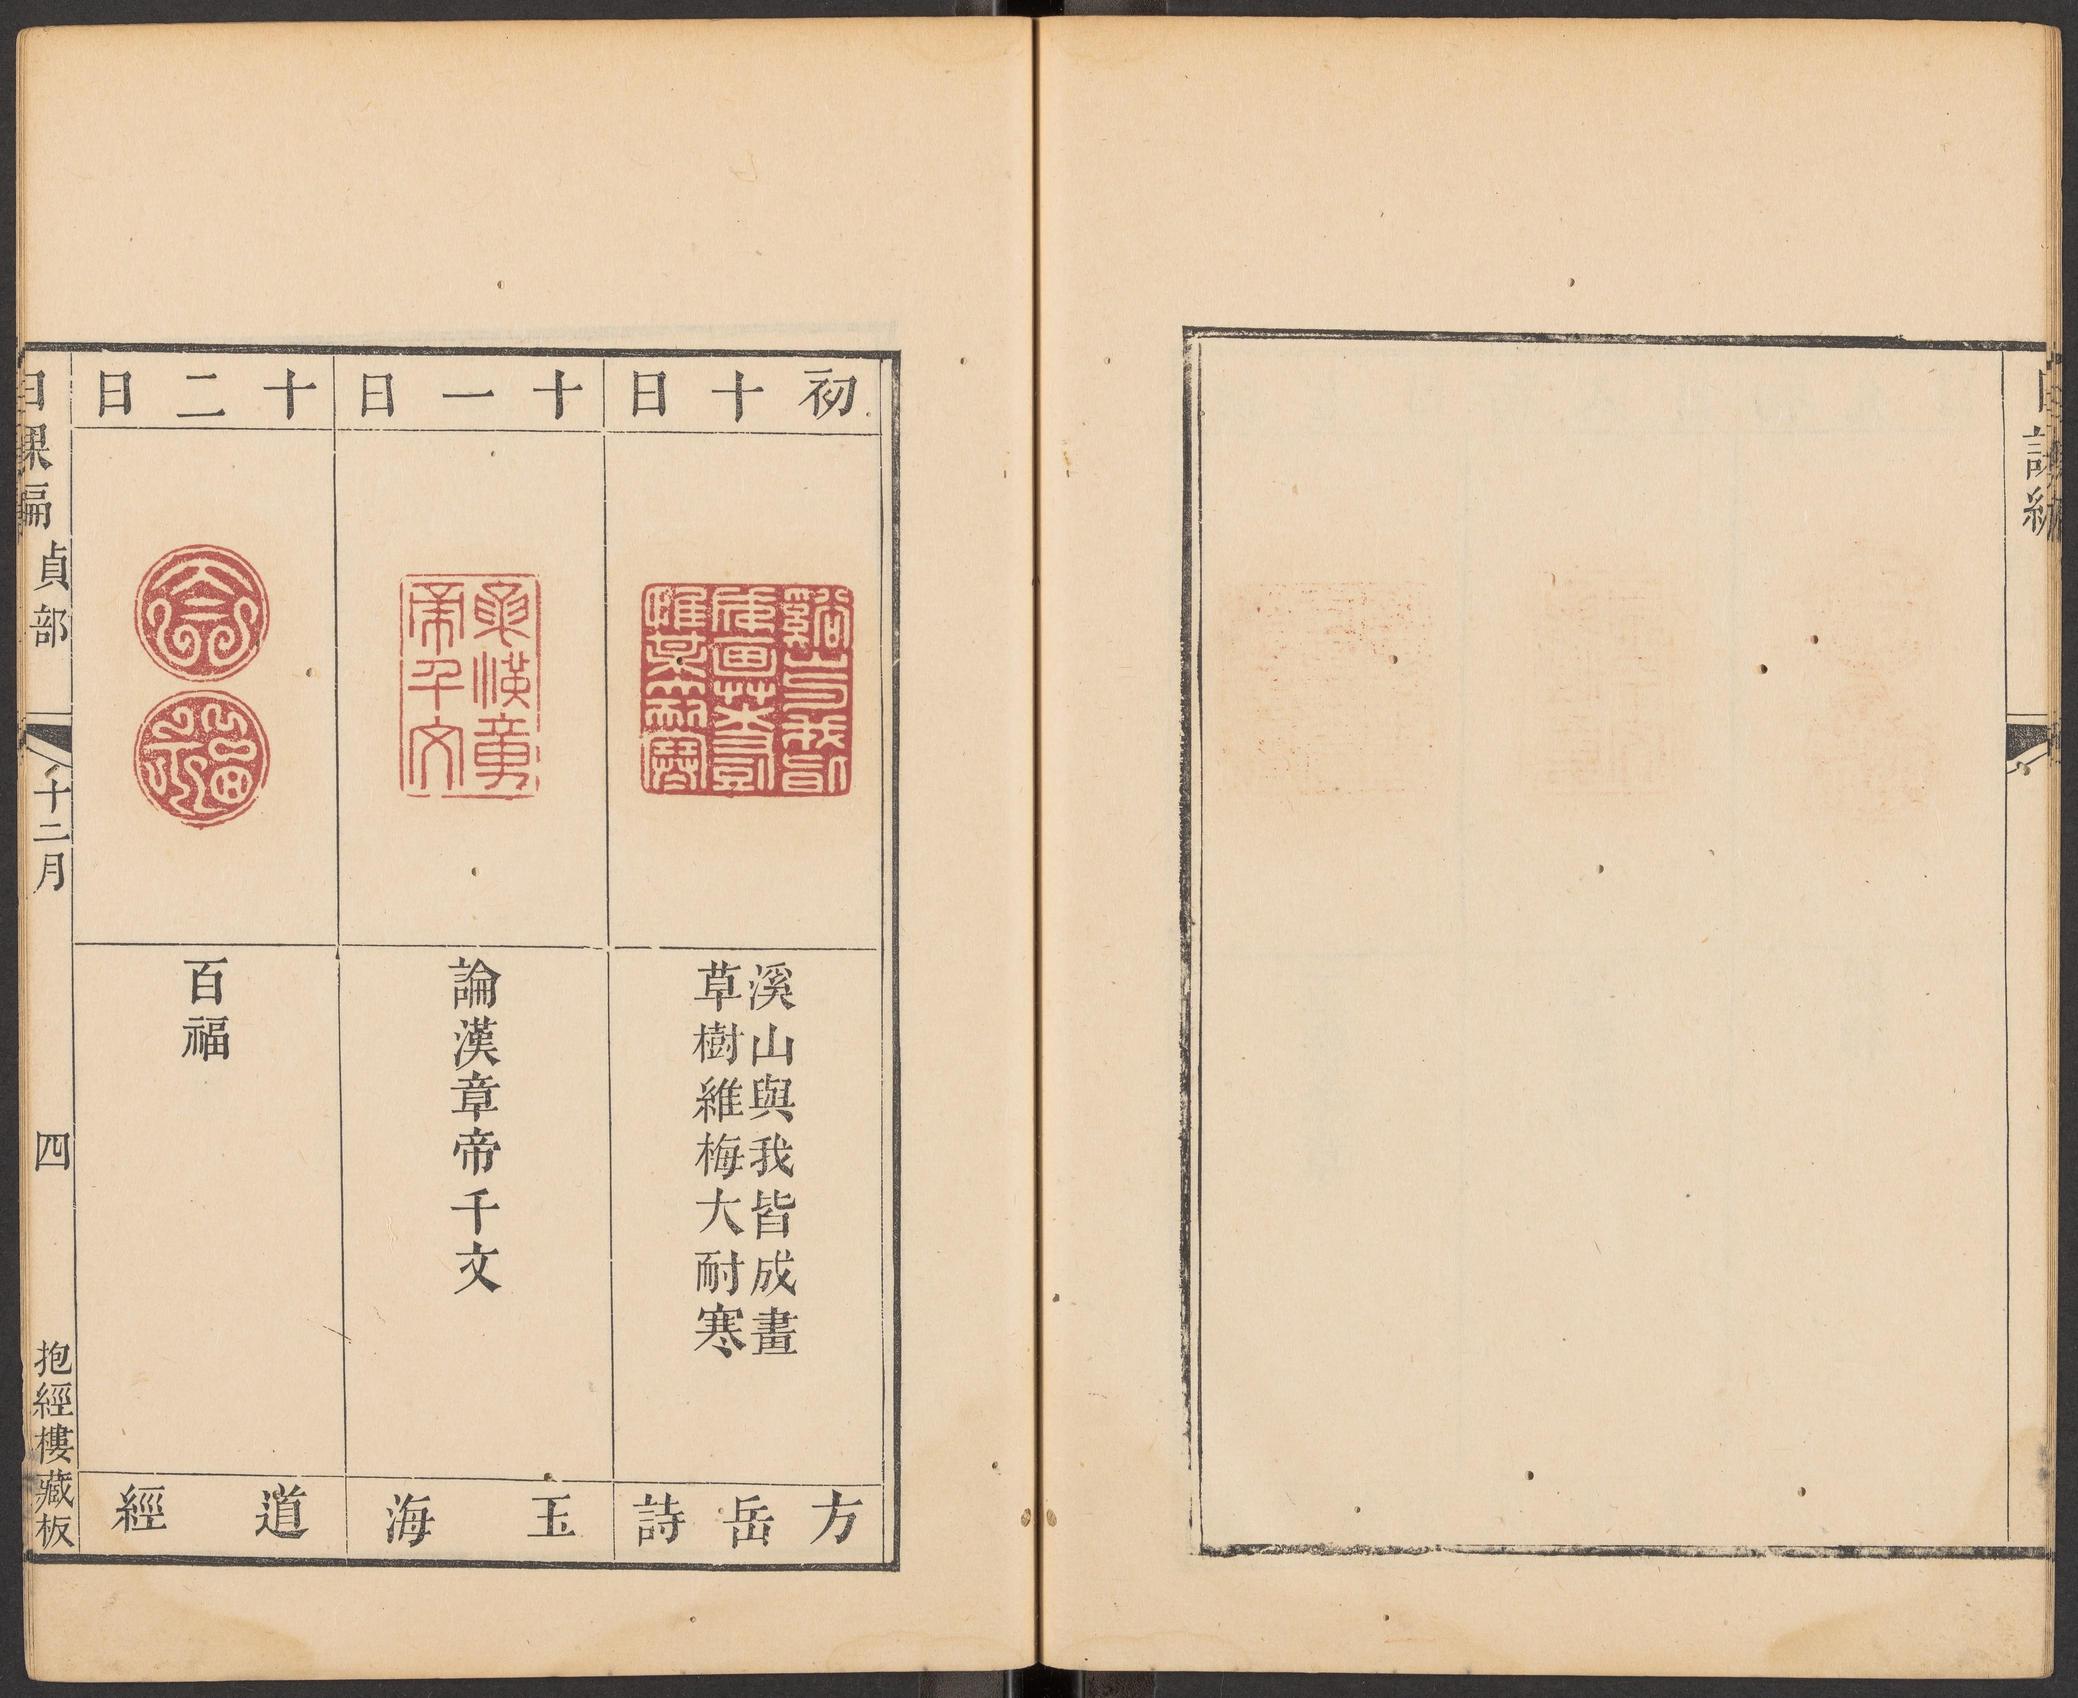 初十日
溪山與我皆成畫
草樹維梅大耐寒
方岳詩
十一日
論漢章帝千文
玉海
十二日
百福
道經
日課編 貞部 十二月 四 抱經樓藏板